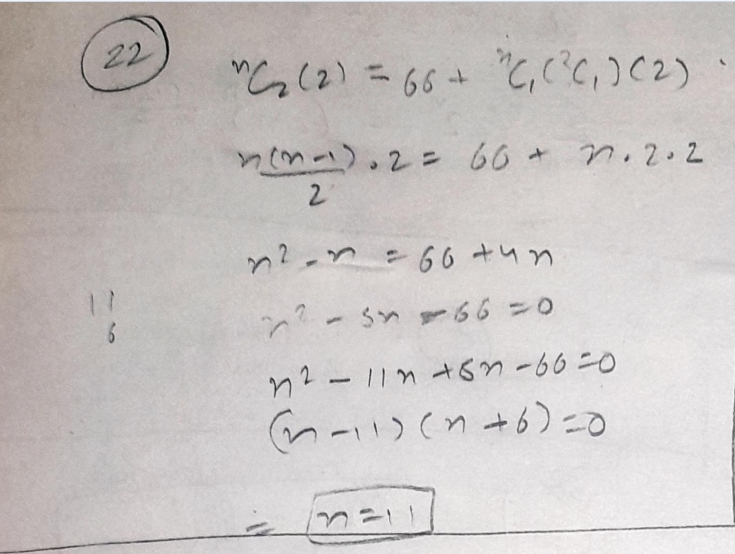 22
ⁿC₂(2) = 66 + ⁿC₁(²C₁)(2)
n(n-1)/2 . 2 = 66 + n.2.2
n² - n = 66 + 4n
11
n² - 5n - 66 = 0
6
n² - 11n + 6n - 66 = 0
(n-11)(n+6) = 0
= n = 11